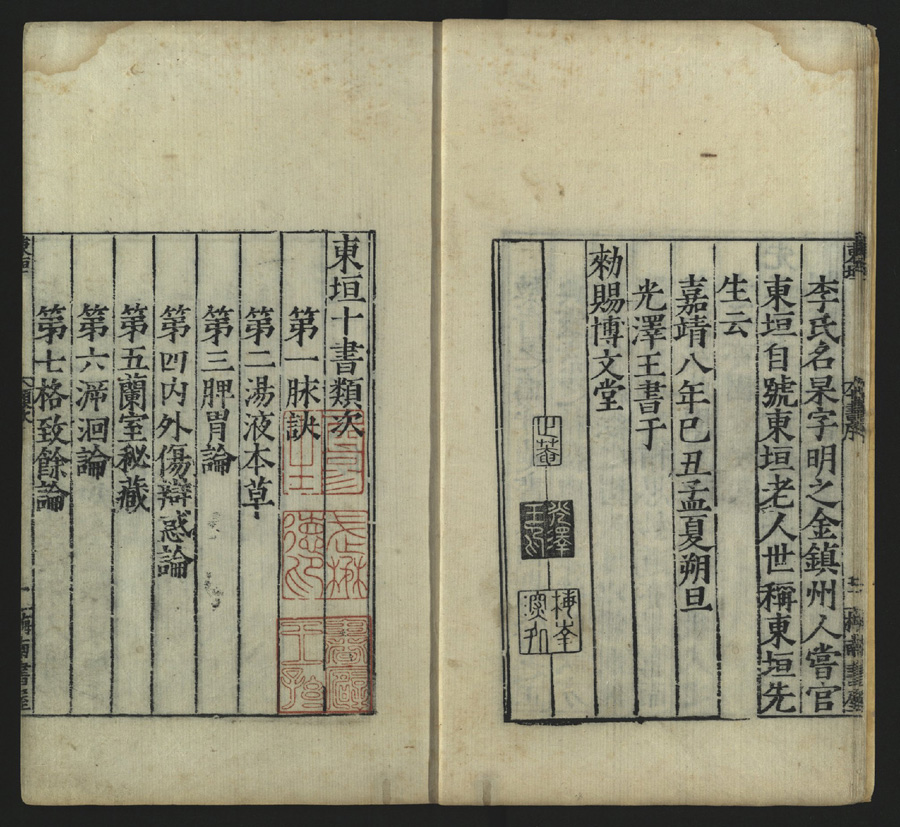 李氏名杲字明之金鎮州人嘗官
東垣自號東垣老人世稱東垣先
生云
嘉靖八年己丑孟夏朔旦
光澤王書于
勑賜博文堂
東垣十書類次
第一脉訣
第二湯液本草
第三脾胃論
第四内外傷辯惑論
第五蘭室秘藏
第六溯洄論
第七格致餘論